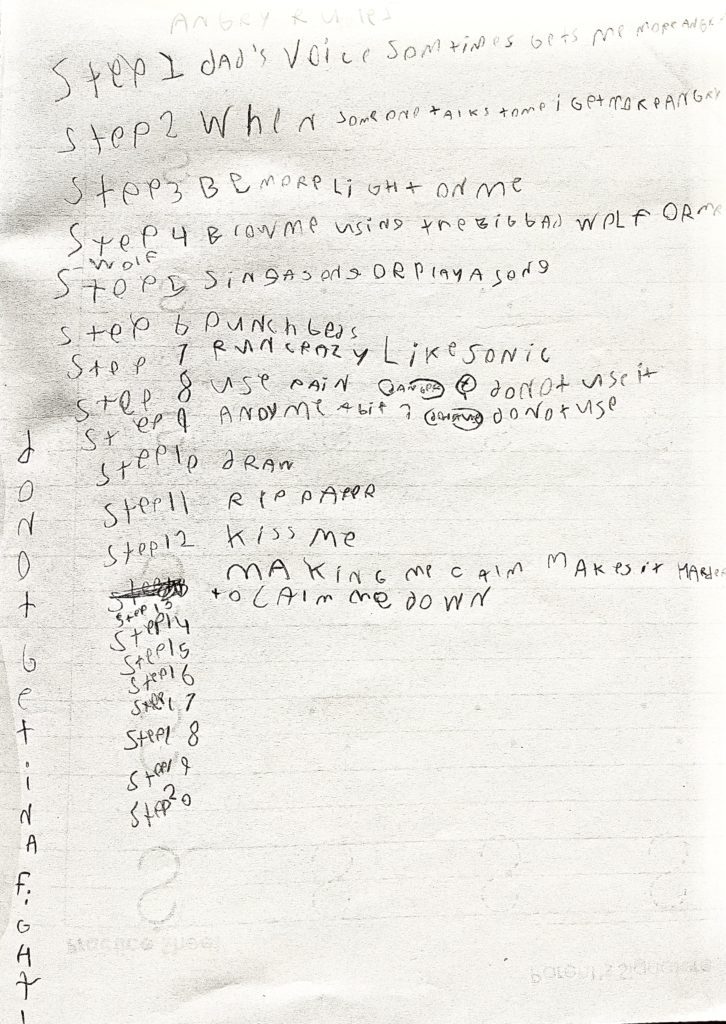 ANGRY RULES
Step 1 dad's Voice somtimes gets me more angr
Step 2 When someone talks to me i get more ANGRY
Step 3 BE MORE LIGHT ON ME
Step 4 BlOW ME USING the BIG bAd WOLF OR me
- WOlF
Step 5 SiNg A SONg OR PlAY A SONg
Step 6 PUNCH beds
Step 7 RUN CRAZY LiKe SONIC
Step 8 USe PAIN DANGER do NOt use it
Step 9 ANOY ME A bit do NOt USe
Step 10 dRAW
Step 11 RIP PAPER
Step 12 Kiss Me
Step 13 MAKING me CAlM MAKes it HARder
to CAlM me DOWN
Step 14
Step 15
Step 16
Step 17
Step 18
Step 19
Step 20
dONOt Get iN A FiGHt
Practice Sheet
Parent's Signature